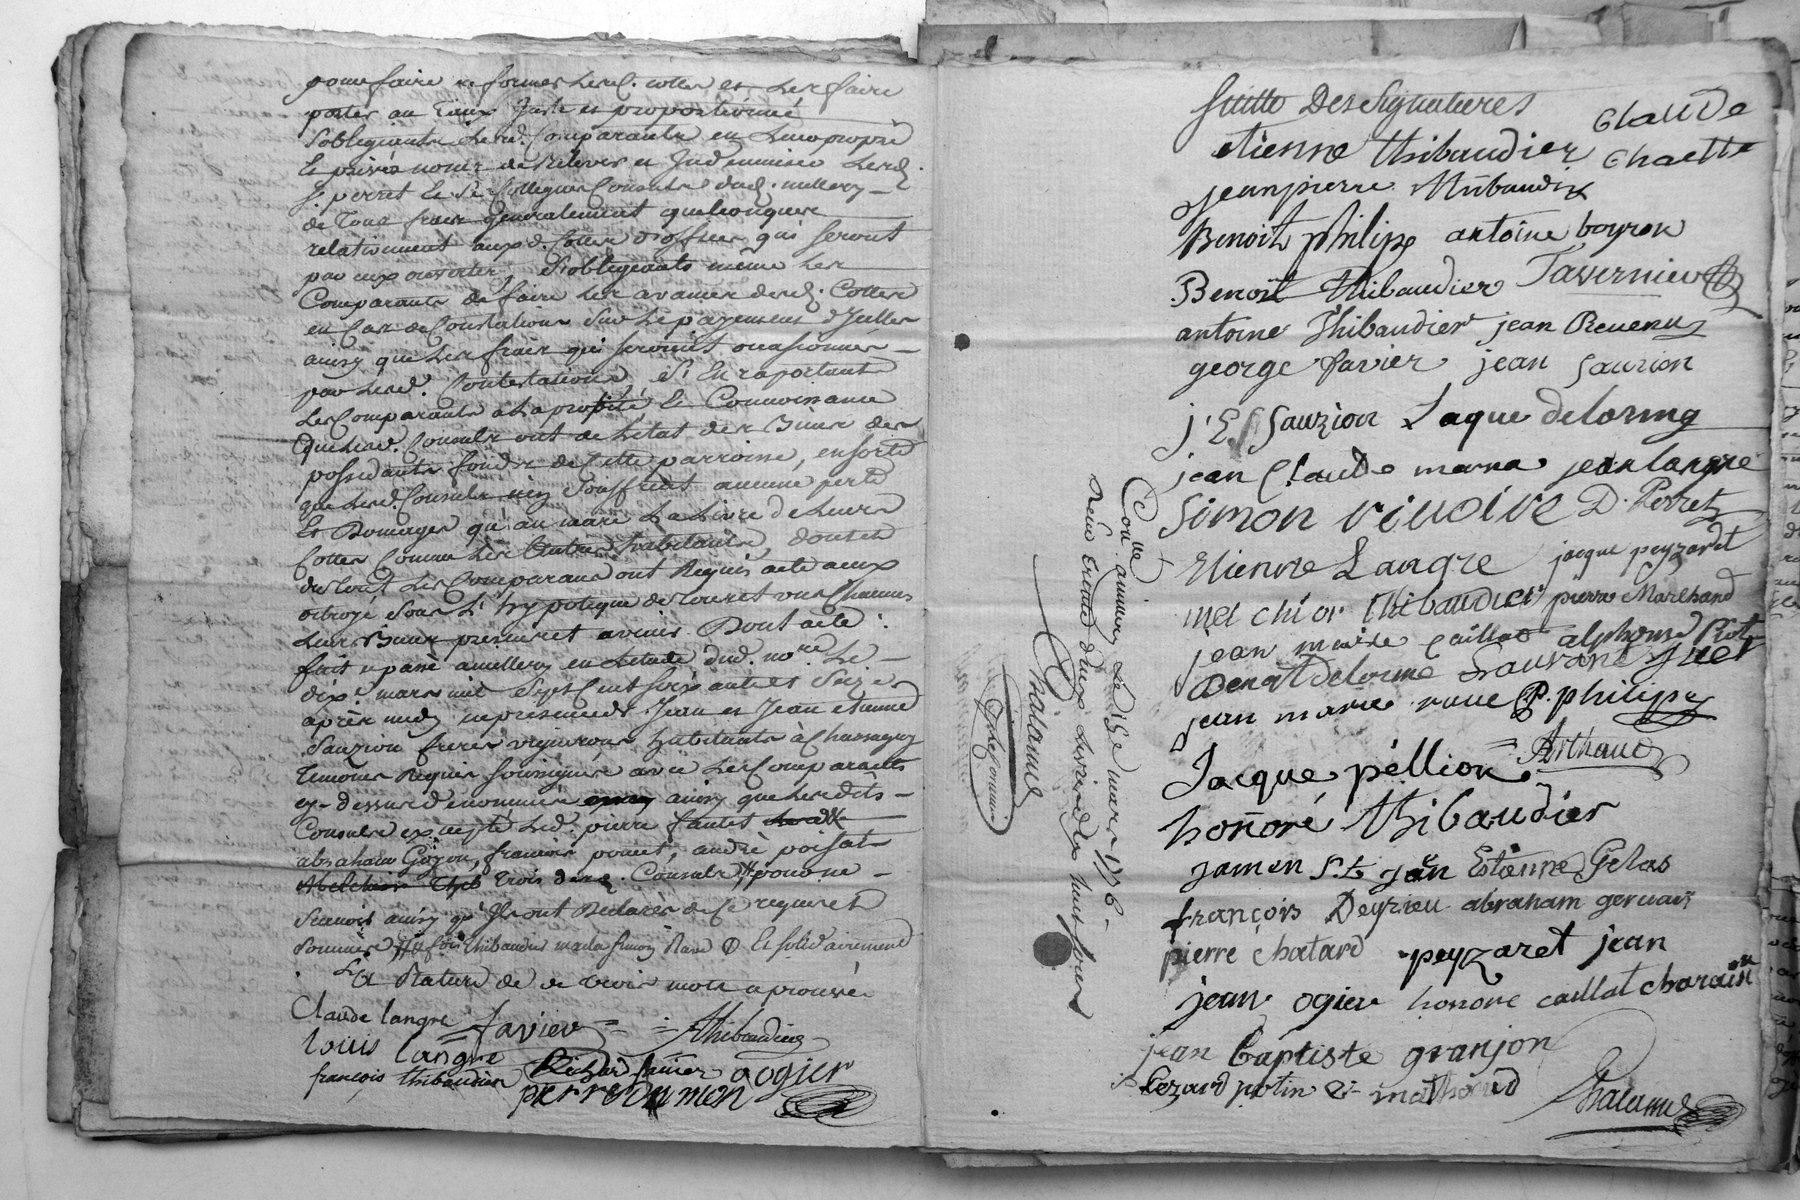 pour faire reformer lesd. cottes et les faire
porter au Taux Juste et proportionné
S'obligeants lesd. Comparants en leurs propre
et privés noms de Relever et Indemniser lesd.
s. perret et ses Collegues Consuls dud. millery
de Tous frais generalement quelconques
relativement auxd. Cottes d'offices qui seront
par eux S'obligeants même les
Comparants de faire les avances desd. Cottes
en Cas de Contestations Sur le payement d'Icelles
ainsy que les frais qui seroient occasionnés
par lesd. Contestations, Et En raportants
les Comparants a la probité et Connoissance
que lesd. Consuls ont de l'état des Biens des
possedants fonds de Cette parroisse, en sorte
que lesd. Consuls n'en Souffrent aucune perte
et Domages qu'au marc la Livre de leurs
Cottes Comme les autres habitants dont et
du tout les Comparans ont Requis acte a eux
octroyé Sous L'hypoteque de tous et uns Chacuns
leurs Biens presents et avenir. Dont acte
fait et passé a millery en l'etude dud. no.re Le
dix.e mars mil Sept Cent soixante et Seize
après midy en presence de Jean et Jean etienne
Sauzion freres vignerons habitants à Chassagny
Temoins Requis soussignés avec les Comparants
cy-dessus denommés ainsy que lesdits
Consuls excepté led. pierre fantet
abraham Goyon, françois poncet, andré poisat
trois desd. Consuls pour ne
scavoir ainsy qu'Ils ont Declarés de ce requis et
Sommés et solidairement
La Rature de de trois mots aprouvée
Claude langre favier Thibaudier
louis langre ogier
françois thibaudier pierre dumon
Suitte Des Signatures
etienne thibaudier Claude Chaette
jean pierre thibaudier
Benoit philipe antoine boyron
Benoit thibaudier Tavernier
antoine Thibaudier jean Revenu
george favier jean Sauzion
j. E Sauzion Laque delorme
jean Claude mana jean langre
Simon rivoire D. Perret
Etienne Langre jacque peyzaret
melchior thibaudier pierre Marchand
jean marie caillat alphonse Piot
Benoit delorme Laurans
jean marie P. philipe
Jacque péllion Arthaud
honoré thibaudier
jamen St. jean Estienne Gelas
françois Deyrieu abraham gervais
pierre chatard peyzaret jean
jean ogier honore caillat charain
jean baptiste granjon
mathoud
Chalamel
Con.lle a millery Le 15.e mars 1776
Reçu trente deux Livres dix huit sous
Chalamel